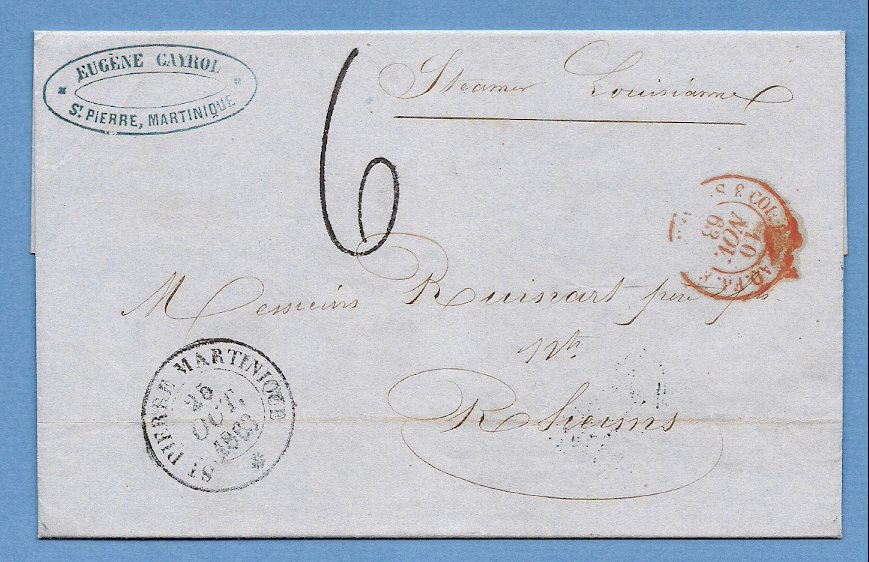 EUGÈNE CAYROL
ST. PIERRE, MARTINIQUE
6
Steamer Louisianne
& COL.
10
NOV.
63
Messieurs Ruinart pere & fils
Rheims
ST PIERRE MARTINIQUE
OCT.
1863